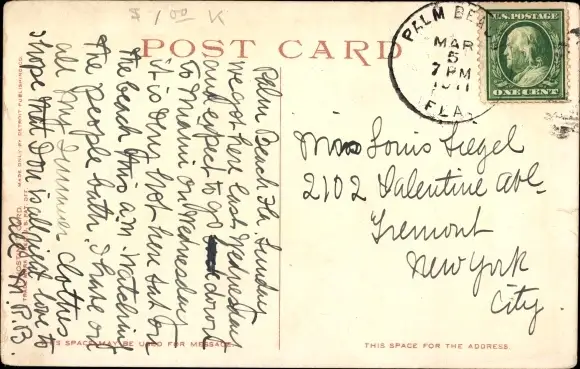 $1.00 K
POST CARD
PALM BEACH
MAR
5
7 PM
1911
FLA.
U.S. POSTAGE
ONE CENT
Palm Beach Fla. Sunday
we got here last Wednesday
and expect to go down
to Miami on Wednesday
it is very hot here sat on
the beach this a.m. watching
the people bath. I have on
all my summer clothes
I hope that Don is all right love to
all H.P.B.
Miss Louis Siegel
2102 Valentine Ave.
Tremont
New York
City.
MADE ONLY BY DETROIT PUBLISHING CO.
THIS SPACE MAY BE USED FOR MESSAGE.
THIS SPACE FOR THE ADDRESS.